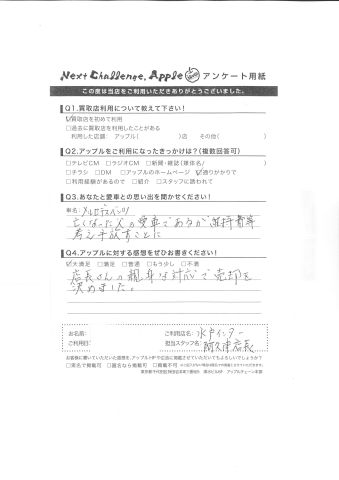 Next Challenge. Apple アンケート用紙
この度は当店をご利用いただきありがとうございました。
Q1.買取店利用について教えて下さい!
☑買取店を初めて利用
□過去に買取店を利用したことがある
利用した店舗: アップル( )店 その他( )
Q2.アップルをご利用になったきっかけは?(複数回答可)
□テレビCM □ラジオCM □新聞・雑誌(媒体名/ )
□チラシ □DM □アップルのホームページ ☑通りがかりで
□利用経験があるので □紹介 □スタッフに誘われて
Q3.あなたと愛車との思い出を聞かせください!
車名: メルセデスベンツ
亡くなった人の愛車であるが維持費等
考え手放すことに
Q4.アップルに対する感想をぜひお書きください!
☑大満足 □満足 □普通 □もう少し □不満
店長さんの親身な対応で売却を
決めました。
お名前: ご利用店名: 水戸インター
ご利用日: 担当スタッフ名: 阿久津店長
お客様に書いていただいた感想を、アップルHPや広告に掲載させていただいてもよろしいでしょうか?
□実名で掲載可 □匿名なら掲載可 □掲載不可